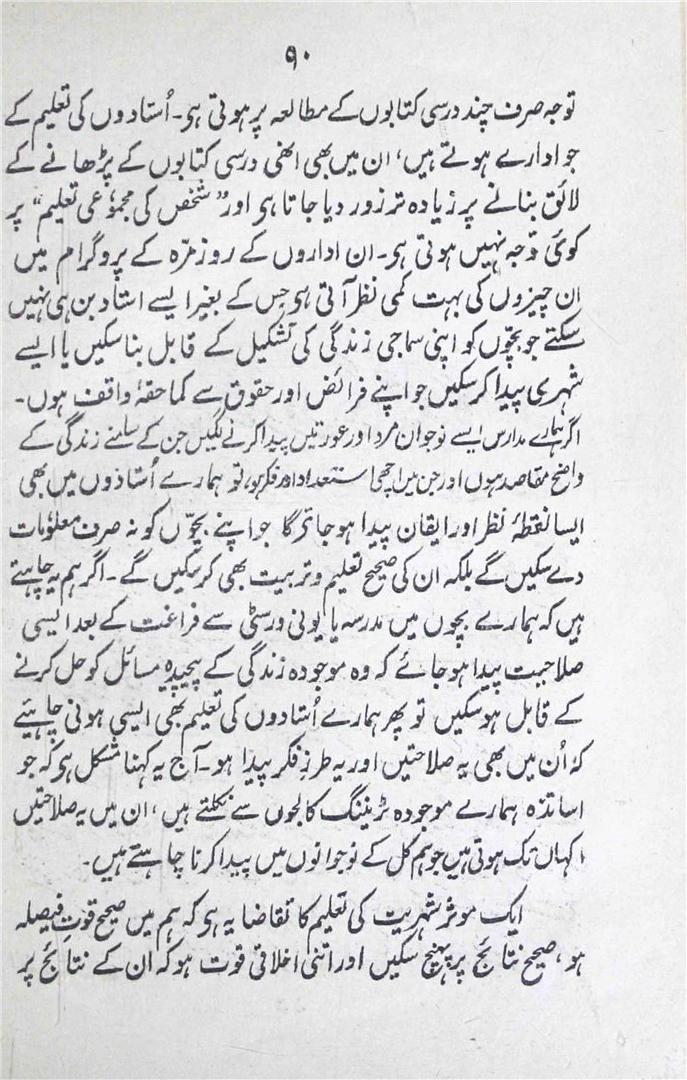 ۹۰
توجہ صرف چند درسی کتابوں کے مطالعہ پر ہوتی ہی۔ اُستادوں کی تعلیم کے
جو ادارے ہوتے ہیں، ان میں بھی انھی درسی کتابوں کے پڑھانے کے
لائق بنانے پر زیادہ تر زور دیا جاتا ہی اور ”شخص کی مجموعی تعلیم“ پر
کوئی توجہ نہیں ہوتی ہی۔ ان اداروں کے روزمرّہ کے پروگرام میں
ان چیزوں کی بہت کمی نظر آتی ہی جس کے بغیر ایسے استاد بن ہی نہیں
سکتے جو بچّوں کو اپنی سماجی زندگی کی تشکیل کے قابل بنا سکیں یا ایسے
شہری پیدا کر سکیں جو اپنے فرائض اور حقوق سے کماحقہٗ واقف ہوں۔
اگر ہمارے مدارس ایسے نوجوان مرد اور عورتیں پیدا کرنے لگیں جن کے سامنے زندگی کے
واضح مقاصد ہوں اور جن میں اچھی استعداد اور فکر ہو، تو ہمارے اُستادوں میں بھی
ایسا نقطۂ نظر اور ایقان پیدا ہو جائے گا جو اپنے بچّوں کو نہ صرف معلومات
دے سکیں گے بلکہ ان کی صحیح تعلیم و تربیت بھی کر سکیں گے۔ اگر ہم یہ چاہتے
ہیں کہ ہمارے بچوں میں مدرسہ یا یونی ورسٹی سے فراغت کے بعد ایسی
صلاحیت پیدا ہو جائے کہ وہ موجودہ زندگی کے پیچیدہ مسائل کو حل کرنے
کے قابل ہو سکیں تو پھر ہمارے اُستادوں کی تعلیم بھی ایسی ہونی چاہیئے
کہ اُن میں بھی یہ صلاحتیں اور یہ طرزِ فکر پیدا ہو۔ آج یہ کہنا مشکل ہی کہ جو
اساتذہ ہمارے موجودہ ٹریننگ کالجوں سے نکلتے ہیں، ان میں یہ صلاحتیں
کہاں تک ہوتی ہیں جو ہم کل کے نوجوانوں میں پیدا کرنا چاہتے ہیں۔
ایک موثر شہریت کی تعلیم کا تقاضا یہ ہی کہ ہم میں صحیح قوتِ فیصلہ
ہو، صحیح نتائج پر پہنچ سکیں اور اتنی اخلاقی قوت ہو کہ ان کے نتائج پر